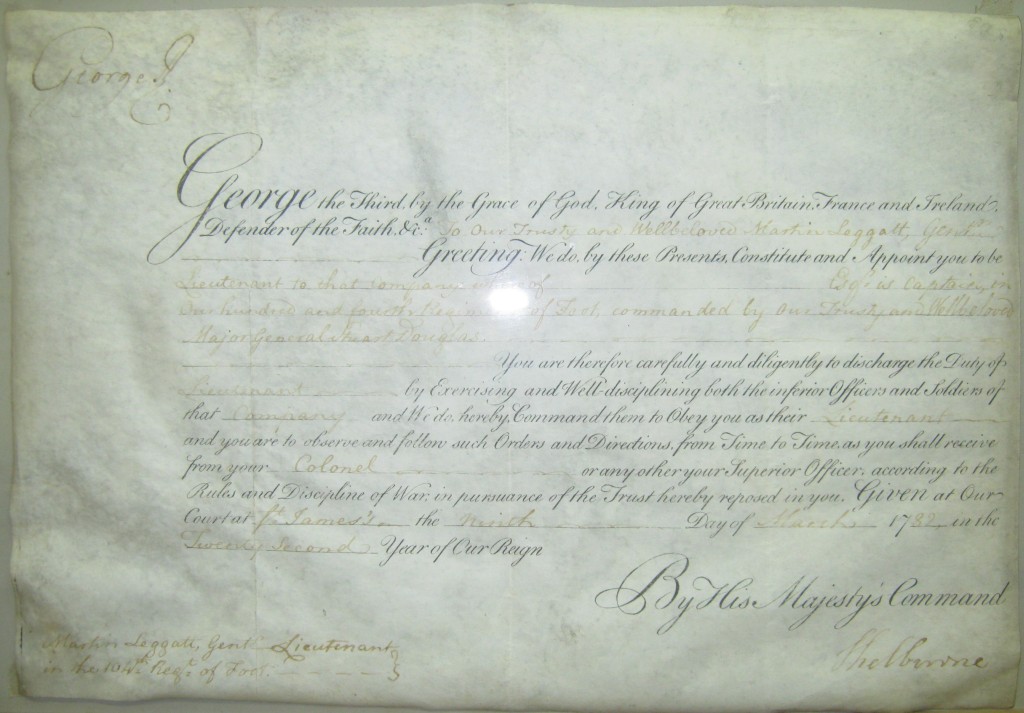 George R
George the Third, by the Grace of God, King of Great Britain, France and Ireland,
Defender of the Faith, &c.a To Our Trusty and Wellbeloved Martin Leggatt, Gent
Greeting: We do, by these Presents, Constitute and Appoint you to be
Lieutenant to that Company whereof Esqr is Captain, in
Our hundred and fourth Regiment of Foot, commanded by Our Trusty and Wellbeloved
Major General Stuart Douglas.
You are therefore carefully and diligently to discharge the Duty of
Lieutenant by Exercising and Well-disciplining both the inferior Officers and Soldiers of
that Company and We do, hereby, Command them to Obey you as their Lieutenant
and you are to observe and follow such Orders and Directions, from Time to Time, as you shall receive
from your Colonel or any other your Superior Officer, according to the
Rules and Discipline of War, in pursuance of the Trust hereby reposed in you. Given at Our
Court at St James's the Ninth Day of March 1782 in the
Twenty Second Year of Our Reign
By His Majesty's Command
Shelburne
Martin Leggatt, Gent Lieutenant
in the 104th Regt of Foot.